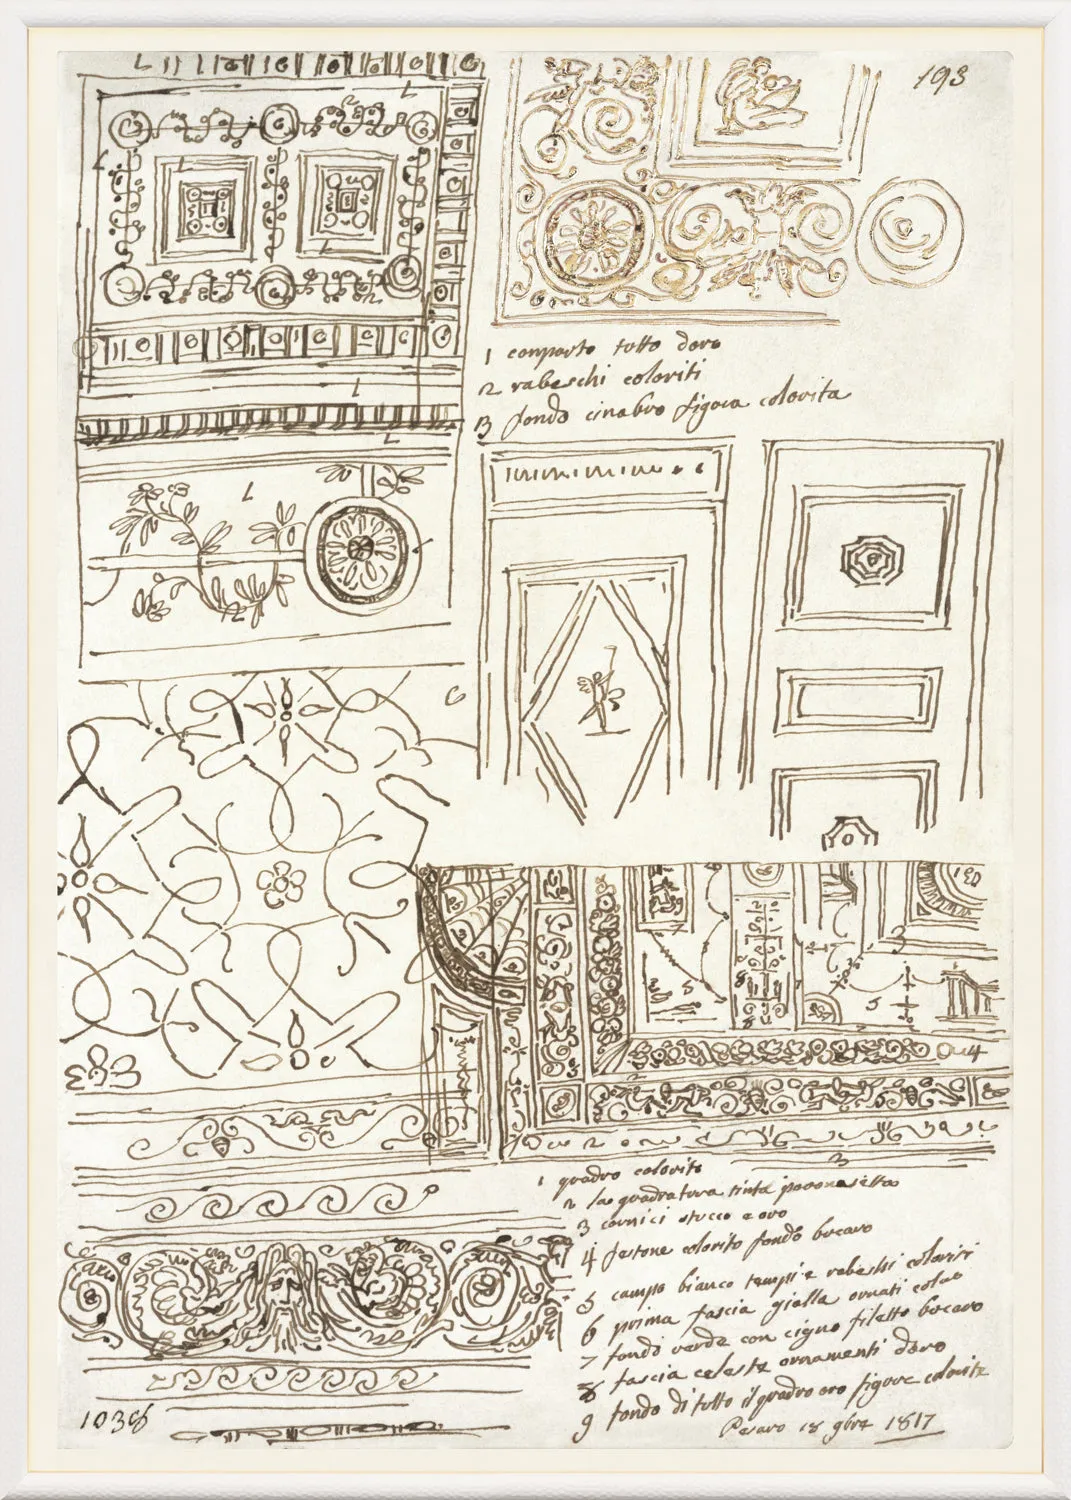 193
1 comparto tutto doro
2 rabeschi coloriti
3 fondo cinabro figura colorita
1 quadro colorito
2 la quadratura tinta paonasetta
3 cornici stucco e oro
4 festone colorito fondo bucaro
5 campo bianco tempi e rabeschi coloriti
6 prima fascia gialla ornati
7 fondo verde con cigno filetto bucaro
8 fascia celeste ornamenti doro
9 fondo di tutto il quadro oro figure colorite
Pesaro 18 9bre 1817